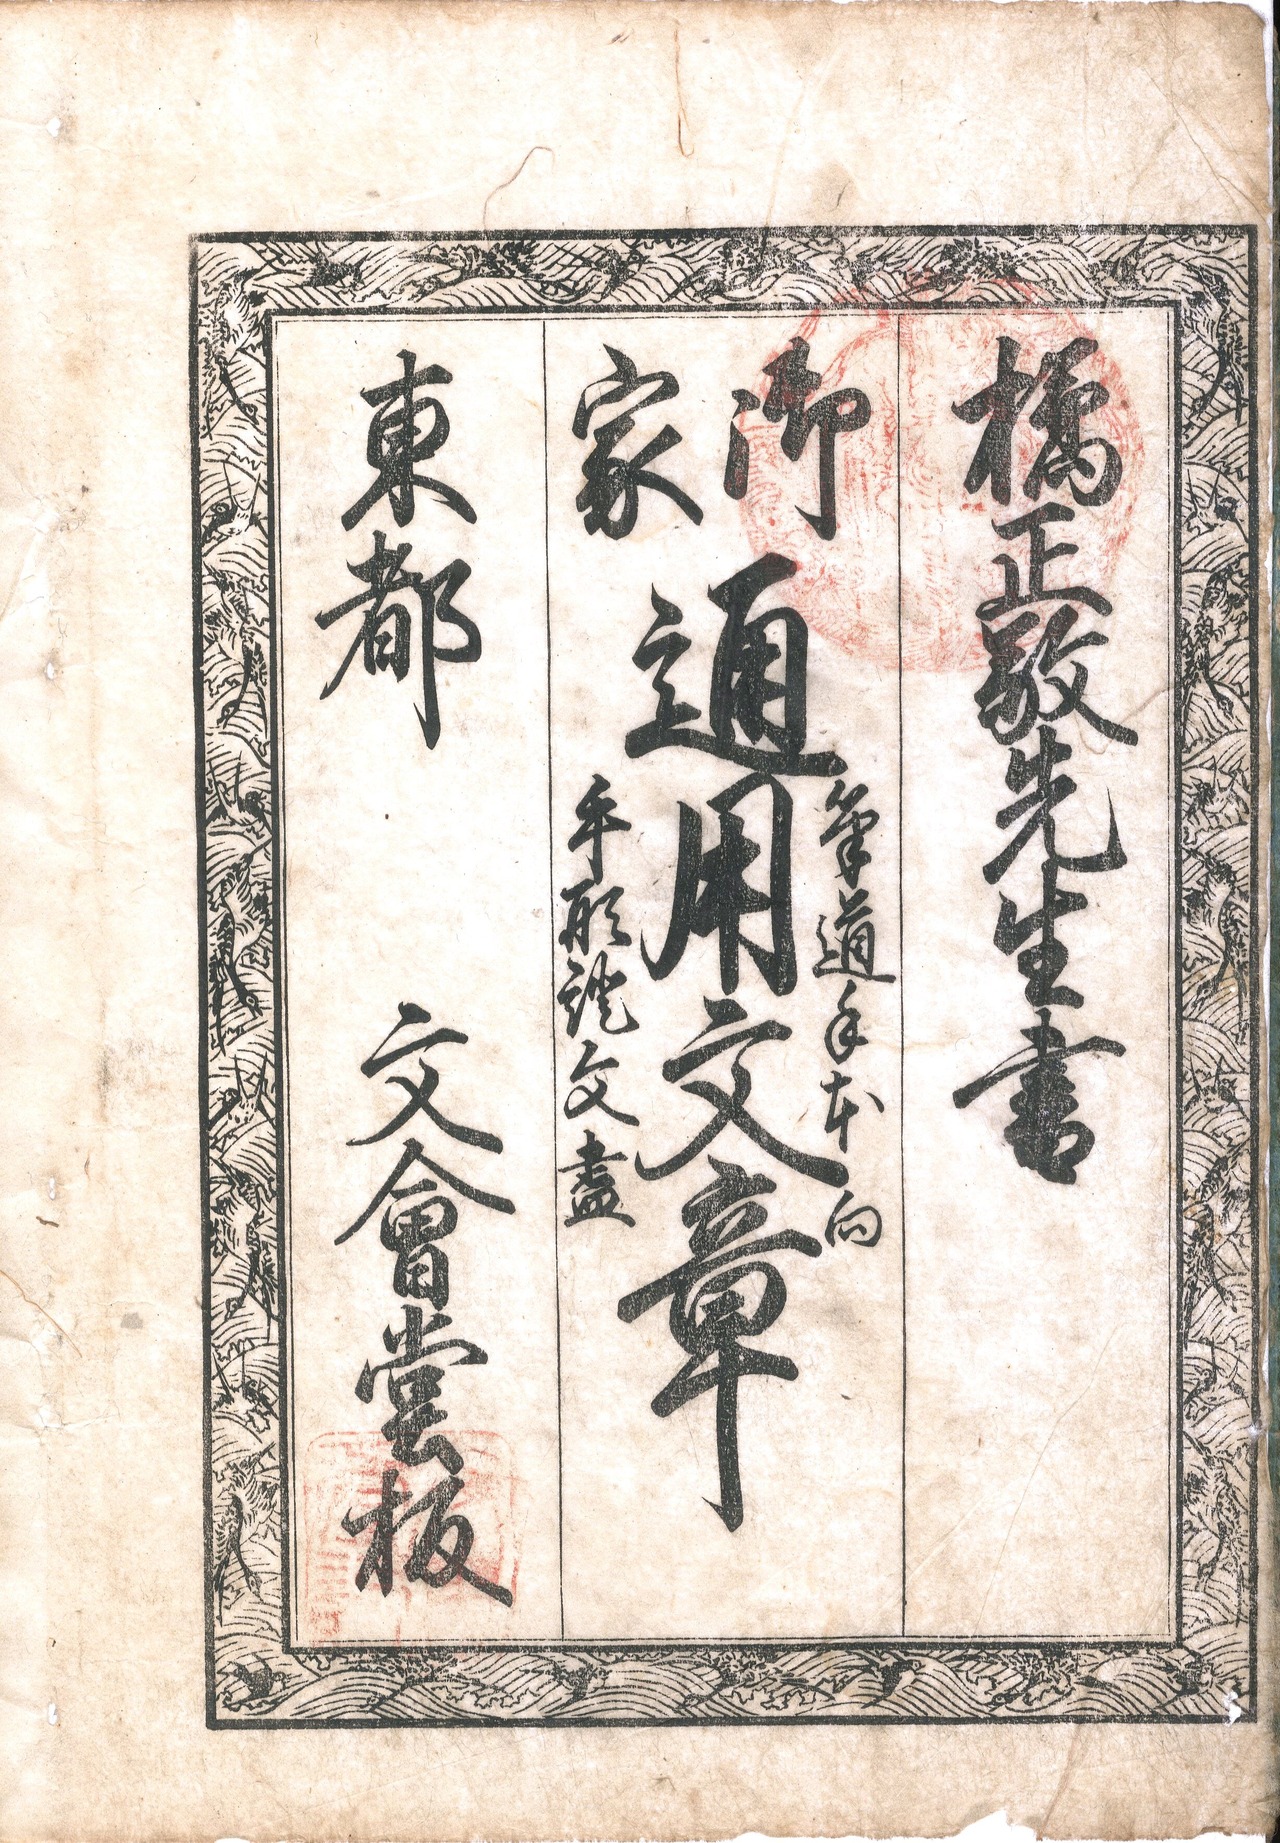 橘正敬先生書
御家
通用文章
筆道手本向
手形證文盡
東都 文會堂板